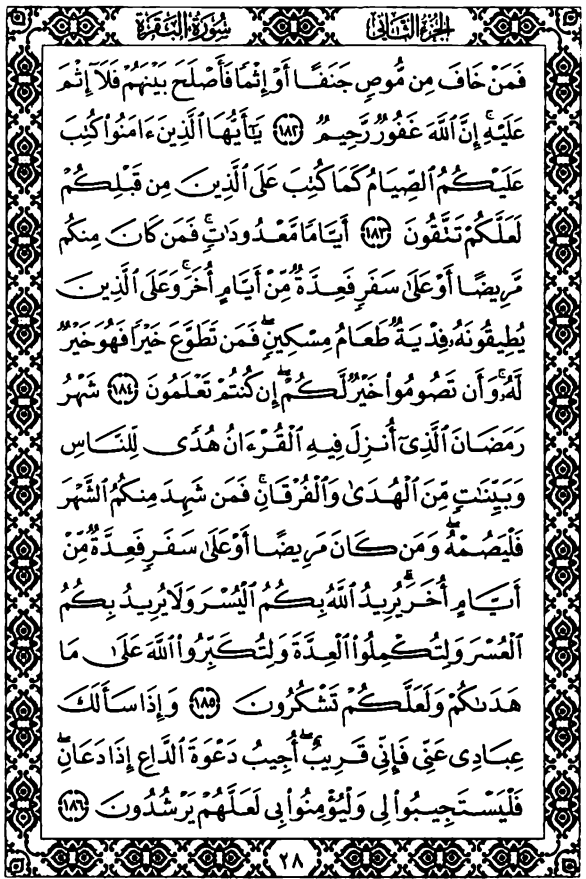 سُورَةُ البَقَرَةِ الجُزءُ الثَّانِي
فَمَنۡ خَافَ مِن مُّوصٖ جَنَفًا أَوۡ إِثۡمٗا فَأَصۡلَحَ بَيۡنَهُمۡ فَلَآ إِثۡمَ
عَلَيۡهِۚ إِنَّ ٱللَّهَ غَفُورٞ رَّحِيمٞ ١٨٢ يَٰٓأَيُّهَا ٱلَّذِينَ ءَامَنُواْ كُتِبَ
عَلَيۡكُمُ ٱلصِّيَامُ كَمَا كُتِبَ عَلَى ٱلَّذِينَ مِن قَبۡلِكُمۡ
لَعَلَّكُمۡ تَتَّقُونَ ١٨٣ أَيَّامٗا مَّعۡدُودَٰتٖۚ فَمَن كَانَ مِنكُم
مَّرِيضًا أَوۡ عَلَىٰ سَفَرٖ فَعِدَّةٞ مِّنۡ أَيَّامٍ أُخَرَۚ وَعَلَى ٱلَّذِينَ
يُطِيقُونَهُۥ فِدۡيَةٞ طَعَامُ مِسۡكِينٖۖ فَمَن تَطَوَّعَ خَيۡرٗا فَهُوَ خَيۡرٞ
لَّهُۥۚ وَأَن تَصُومُواْ خَيۡرٞ لَّكُمۡۖ إِن كُنتُمۡ تَعۡلَمُونَ ١٨٤ شَهۡرُ
رَمَضَانَ ٱلَّذِيٓ أُنزِلَ فِيهِ ٱلۡقُرۡءَانُ هُدٗى لِّلنَّاسِ
وَبَيِّنَٰتٖ مِّنَ ٱلۡهُدَىٰ وَٱلۡفُرۡقَانِۚ فَمَن شَهِدَ مِنكُمُ ٱلشَّهۡرَ
فَلۡيَصُمۡهُۖ وَمَن كَانَ مَرِيضًا أَوۡ عَلَىٰ سَفَرٖ فَعِدَّةٞ مِّنۡ
أَيَّامٍ أُخَرَۗ يُرِيدُ ٱللَّهُ بِكُمُ ٱلۡيُسۡرَ وَلَا يُرِيدُ بِكُمُ
ٱلۡعُسۡرَ وَلِتُكۡمِلُواْ ٱلۡعِدَّةَ وَلِتُكَبِّرُواْ ٱللَّهَ عَلَىٰ مَا
هَدَىٰكُمۡ وَلَعَلَّكُمۡ تَشۡكُرُونَ ١٨٥ وَإِذَا سَأَلَكَ
عِبَادِي عَنِّي فَإِنِّي قَرِيبٌۖ أُجِيبُ دَعۡوَةَ ٱلدَّاعِ إِذَا دَعَانِۖ
فَلۡيَسۡتَجِيبُواْ لِي وَلۡيُؤۡمِنُواْ بِي لَعَلَّهُمۡ يَرۡشُدُونَ ١٨٦
٢٨